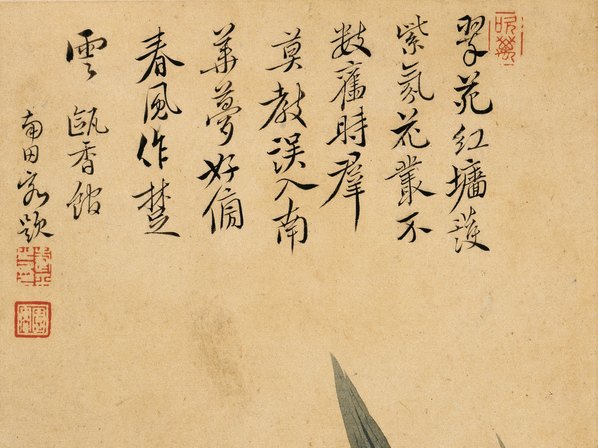 翠苑紅墻護
紫氛花叢不
数舊時群
莫教误入南
華夢好倩
春風作楚
雲 甌香館
南田客題